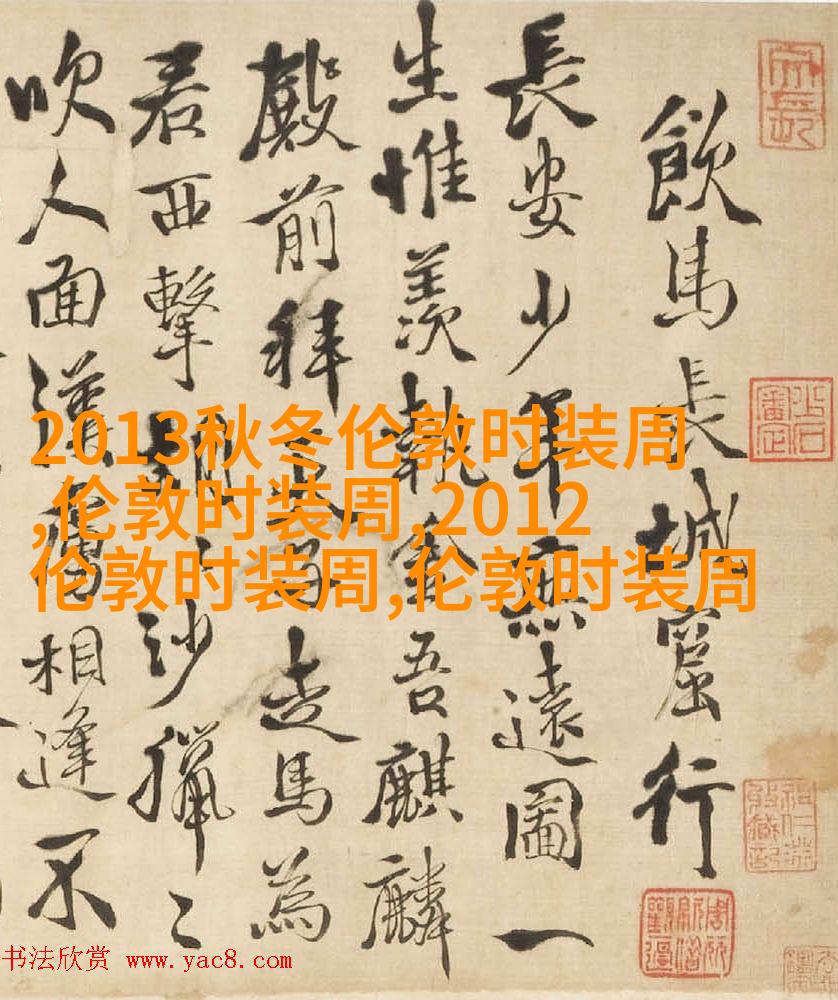 飲馬長城窟行
長安少年無遠圖一
生惟羨執金吾麒麟
殿前拜走馬為
君西擊胡〻沙獵〻
吹人面漢虜相逢不
2013秋冬伦敦时装周
,伦敦时装周,2012
伦敦时装周,伦敦时装周
书法欣赏 www.yac8.com